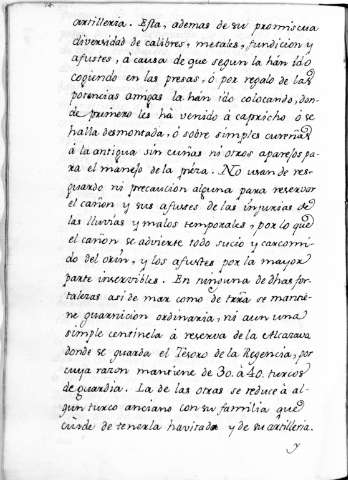 artilleria. Esta, ademas de su promiscua
diversidad de calibres, metales, fundicion y
afustes, à causa de que segun la hán ido
cogiendo en las presas, ò por regalo de las
potencias amigas la hán ido colocando, don-
de primero les há venido à capricho ò se
halla desmontada, ò sobre simples cureñas
à la antigua sin cuñas ni otros aparejos pa-
ra el manejo de la pieza. No usan de res-
guardo ni precaucion alguna para reservar
el cañon y sus afustes de las injurias de
las lluvias y malos temporales, por lo que
el cañon se advierte todo sucio y carcomi-
do del orin, y los afustes por la mayor
parte inservibles. En ninguna de dhas for-
talezas asi de mar como de trra se mantie-
ne guarnicion ordinaria, ni aun una
simple centinela à reserva de la Alcazava
donde se guarda el Tesoro de la Regencia, por
cuya razon mantiene de 30. à 40. turcos
de guardia. La de las otras se reduce à al-
gun turco anciano con su familia que
cuide de tenerla havitada y de su artilleria.
y